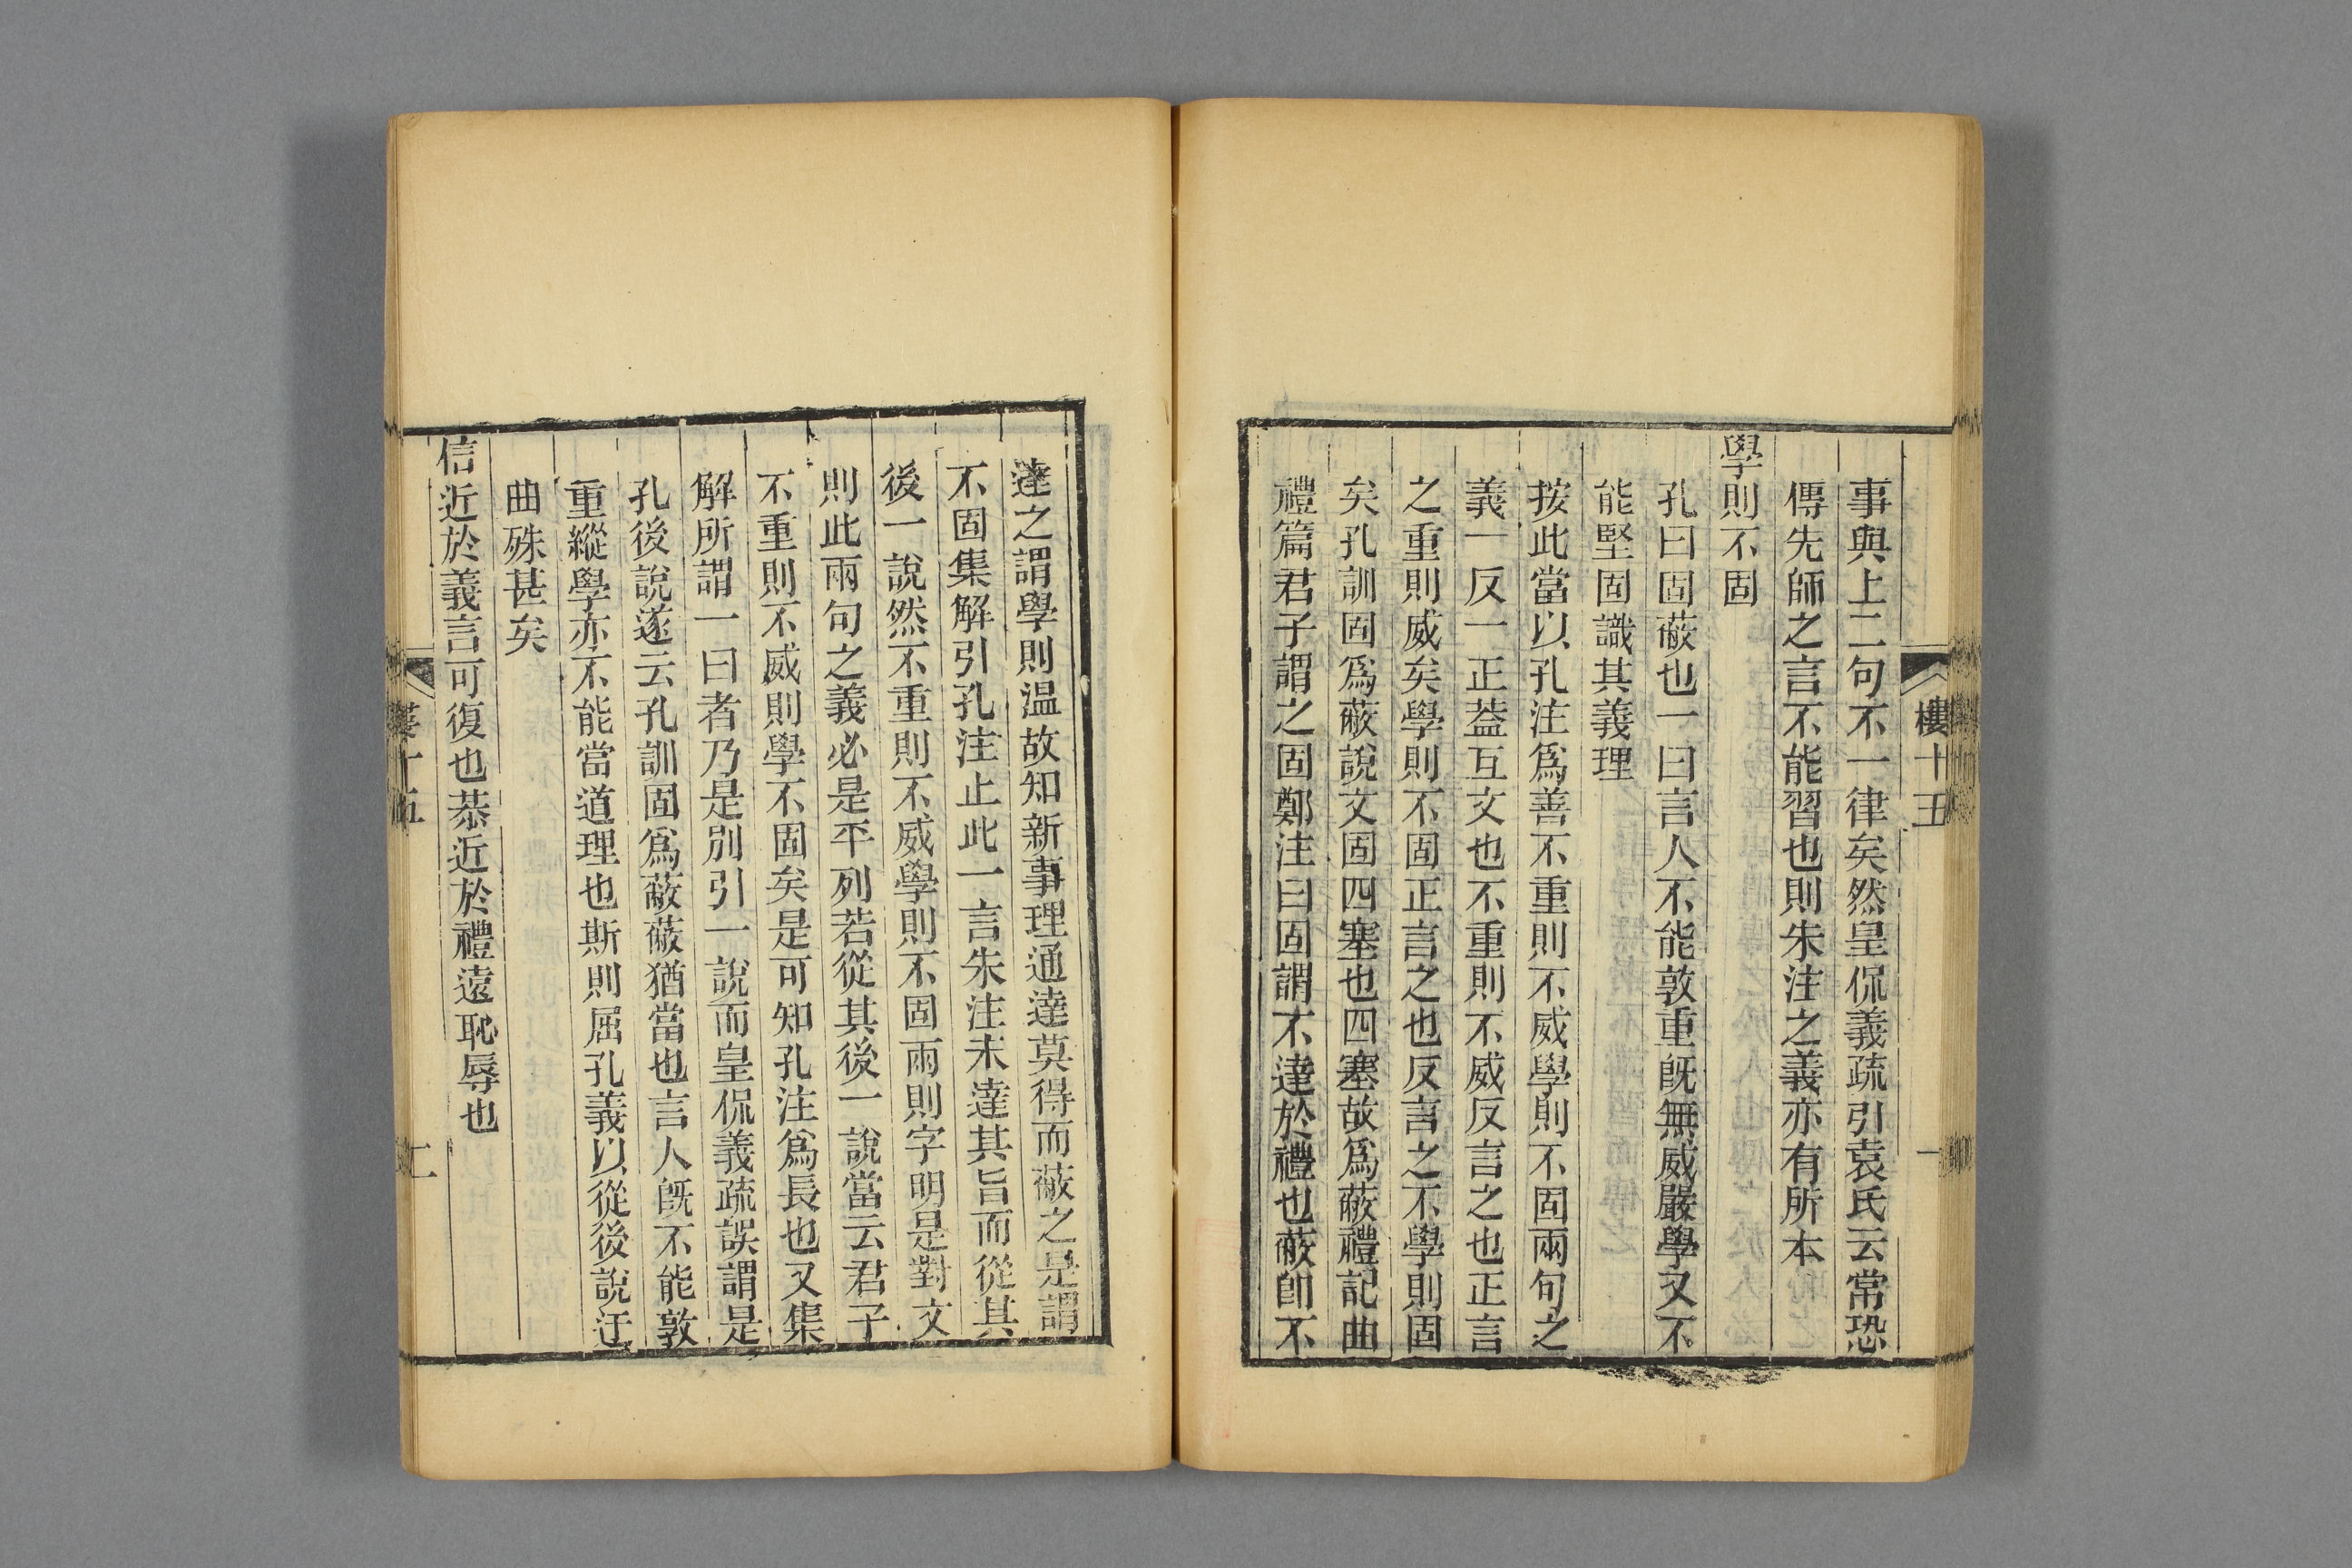 樓十五
一
事與上二句不一律矣然皇侃義疏引袁氏云常恐
傳先師之言不能習也則朱注之義亦有所本
學則不固
孔曰固蔽也一曰言人不能敦重旣無威嚴學又不
能堅固識其義理
按此當以孔注爲善不重則不威學則不固兩句之
義一反一正葢互文也不重則不威反言之也正言
之重則威矣學則不固正言之也反言之不學則固
矣孔訓固爲蔽說文固四塞也四塞故爲蔽禮記曲
禮篇君子謂之固鄭注曰固謂不達於禮也蔽卽不
達之謂學則温故知新事理通達莫得而蔽之是謂
不固集解引孔注止此一言朱注未達其旨而從其
後一說然不重則不威學則不固兩則字明是對文
則此兩句之義必是平列若從其後一說當云君子
不重則不威則學不固矣是可知孔注爲長也又集
解所謂一曰者乃是別引一說而皇侃義疏誤謂是
孔後說遂云孔訓固爲蔽蔽猶當也言人旣不能敦
重縱學亦不能當道理也斯則屈孔義以從後說迂
曲殊甚矣
信近於義言可復也恭近於禮遠恥辱也
樓十五
二